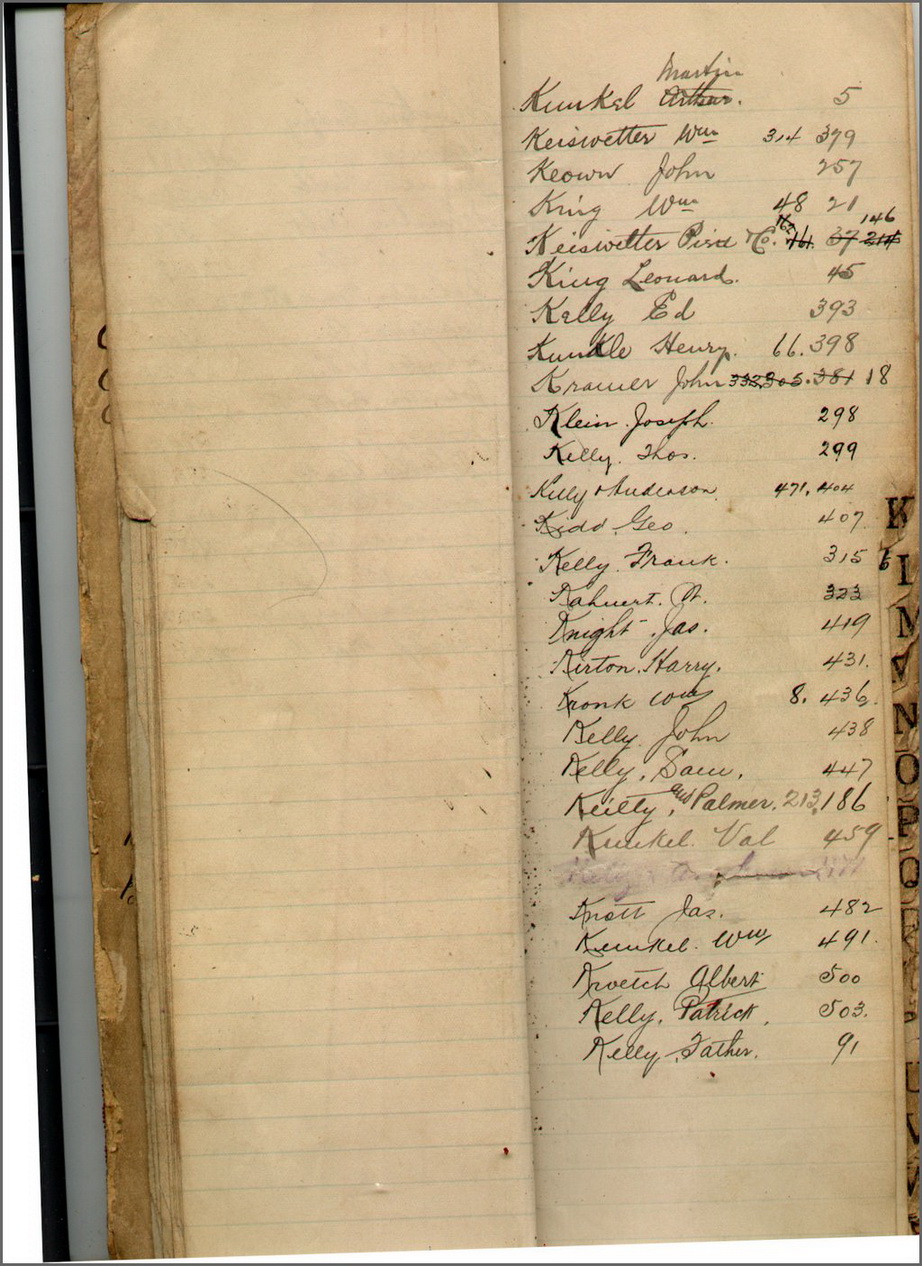 Martin
Kunkel Arthur. 5
Keiswetter Wm 314 379
Keown John 257
King Wm 48 21
146
Keiswetter Co. 161. 37 214
King Leonard. 45
Kelly Ed 393
Kunkle Henry. 66. 398
Kramer John 332, 305. 381 18
Klein. Joseph. 298
Kelly. Thos. 299
Kelly & Anderson 471, 404
Kidd. Geo. 407
Kelly. Frank. 315
Kahnert. 323
Knight. Jas. 419
Kirton. Harry. 431.
Kronk Wm 8. 436.
Kelly. John 438
Kelly, Sam. 447
Keilty, and Palmer. 213, 186
Kunkel. Val 459
Knott Jas. 482
Kunkel. Wm 491.
Kroetch Albert 500
Kelly, Patrick, 503.
Kelly, Father. 91
K
L
M
N
O
P
Q